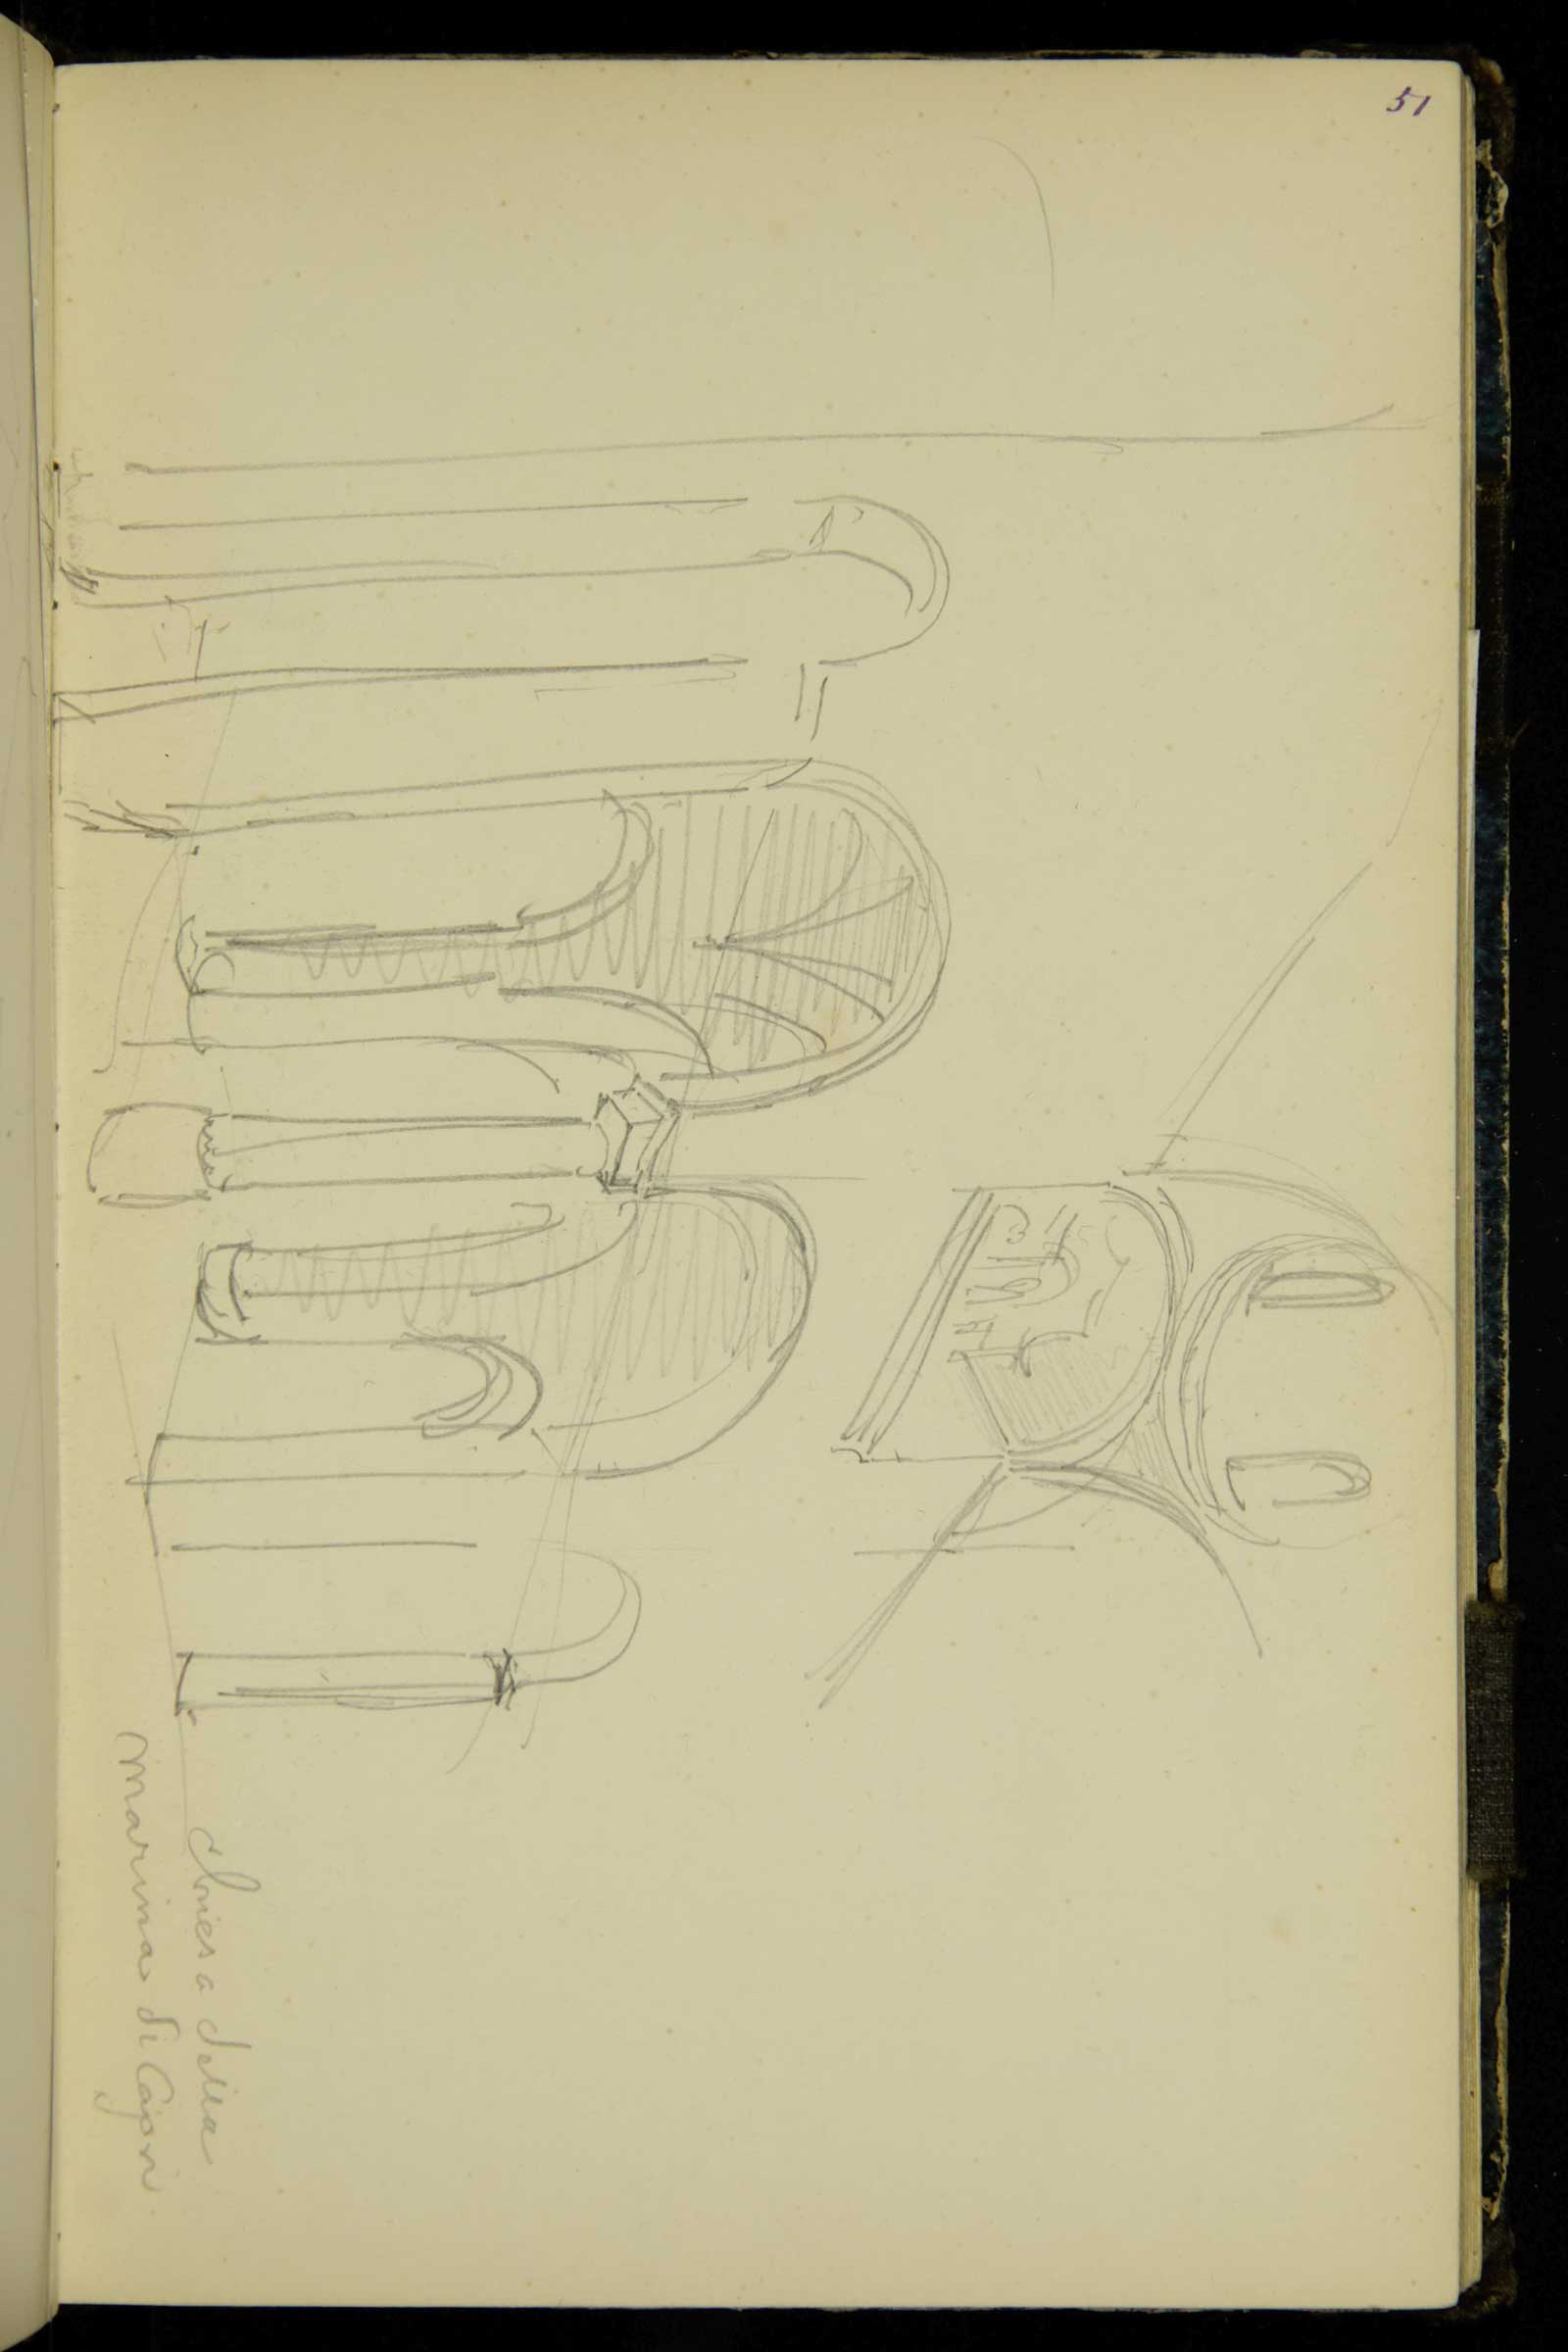 51
chiesa della
marina di Capri